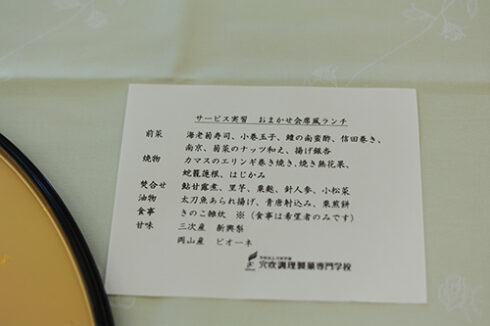 サービス実習　おまかせ会席風ランチ
前菜　海老菊寿司、小巻玉子、鱧の南蛮酢、信田巻き、
南京、菊菜のナッツ和え、揚げ銀杏
焼物　カマスのエリンギ巻き焼き、焼き無花果、
蛇籠蓮根、はじかみ
焚合せ　鮎甘露煮、里芋、粟麩、針人参、小松菜
油物　太刀魚あられ揚げ、青唐射込み、栗煎餅
食事　きのこ雑炊　※（食事は希望者のみです）
甘味　三次産　新興梨
両山産　ピオーネ
穴吹調理製菓専門学校